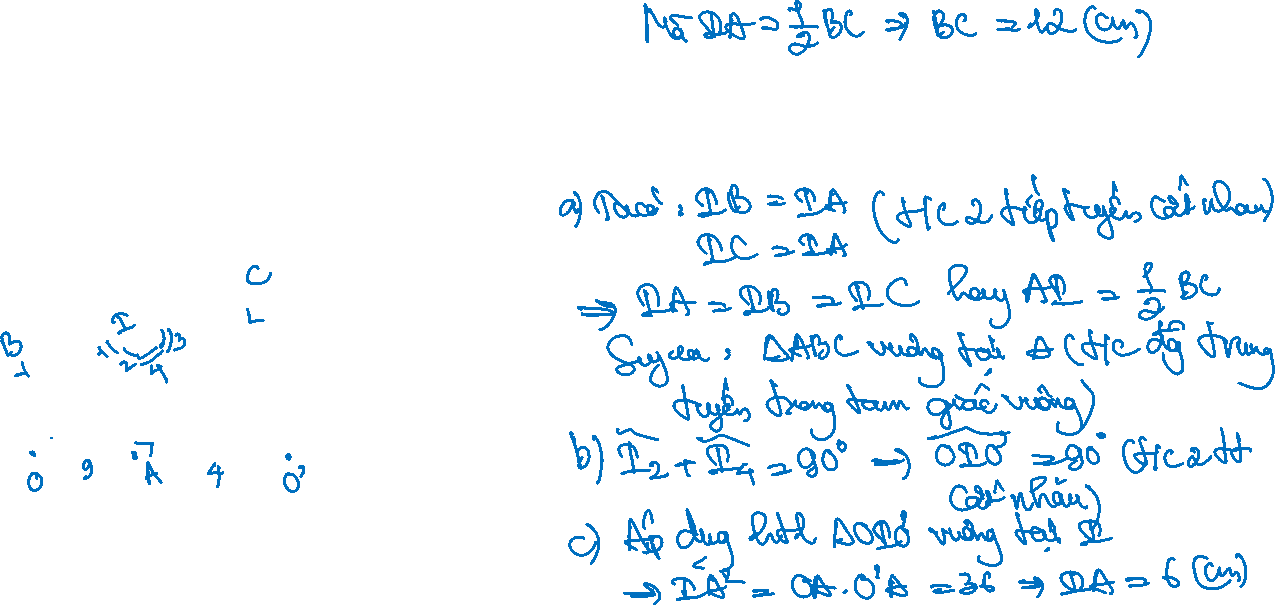 Mà IA = 1/2 BC ⇒ BC = 12 (cm)
a) Ta có: IB = IA (t/c 2 tiếp tuyến cắt nhau)
IC = IA
⇒ IA = IB = IC hay AI = 1/2 BC
Suy ra: ΔABC vuông tại A (t/c đg trung
tuyến trong tam giác vuông)
b) I₂ + I₄ = 90° → OIO' = 90° (t/c 2 tt
cắt nhau)
c) Áp dụng htl ΔOIO' vuông tại I
→ IA² = OA.O'A = 36 ⇒ IA = 6 (cm)
C
I
B
1 2 4 3
O 9 A 4 O'